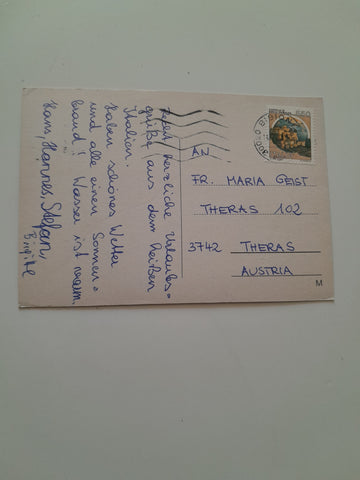 herzliche Urlaubs=
grüße aus dem heißen
Italien.
Haben schönes Wetter
und alle einen Sonnen=
brand! Wasser ist warm.
Hans, Hannes, Stefan,
Birgitte
AN
FR. MARIA GEIST
THERAS 102
3742 THERAS
AUSTRIA
M